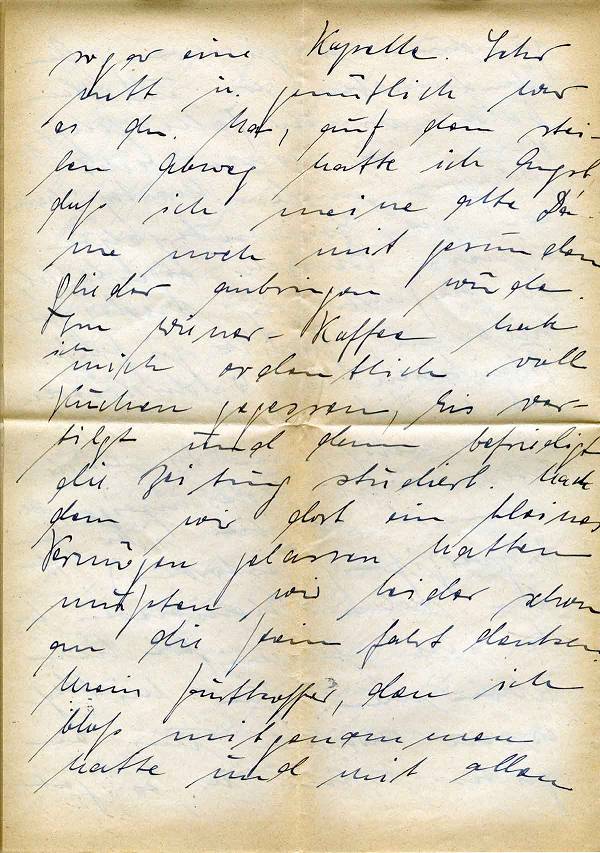 sogar eine Kapelle. Sehr
nett u. gemütlich war
es da. Na, auf dem stei-
len Abweg hatte ich Angst,
daß ich meine alte Da-
me noch mit gesunden
Glieder anbringen würde.
Im Wiener-Kaffee hab
ich
mich ordentlich voll
Kuchen gegessen, Eis ver-
tilgt und dann befriedigt
die Zeitung studiert. Nach
dem wir dort ein kleines
Vermögen gelassen hatten
mußten wir leider schon
an die Heimfahrt denken.
Mein, den ich
bloß mitgenommen
hatte und mit allen